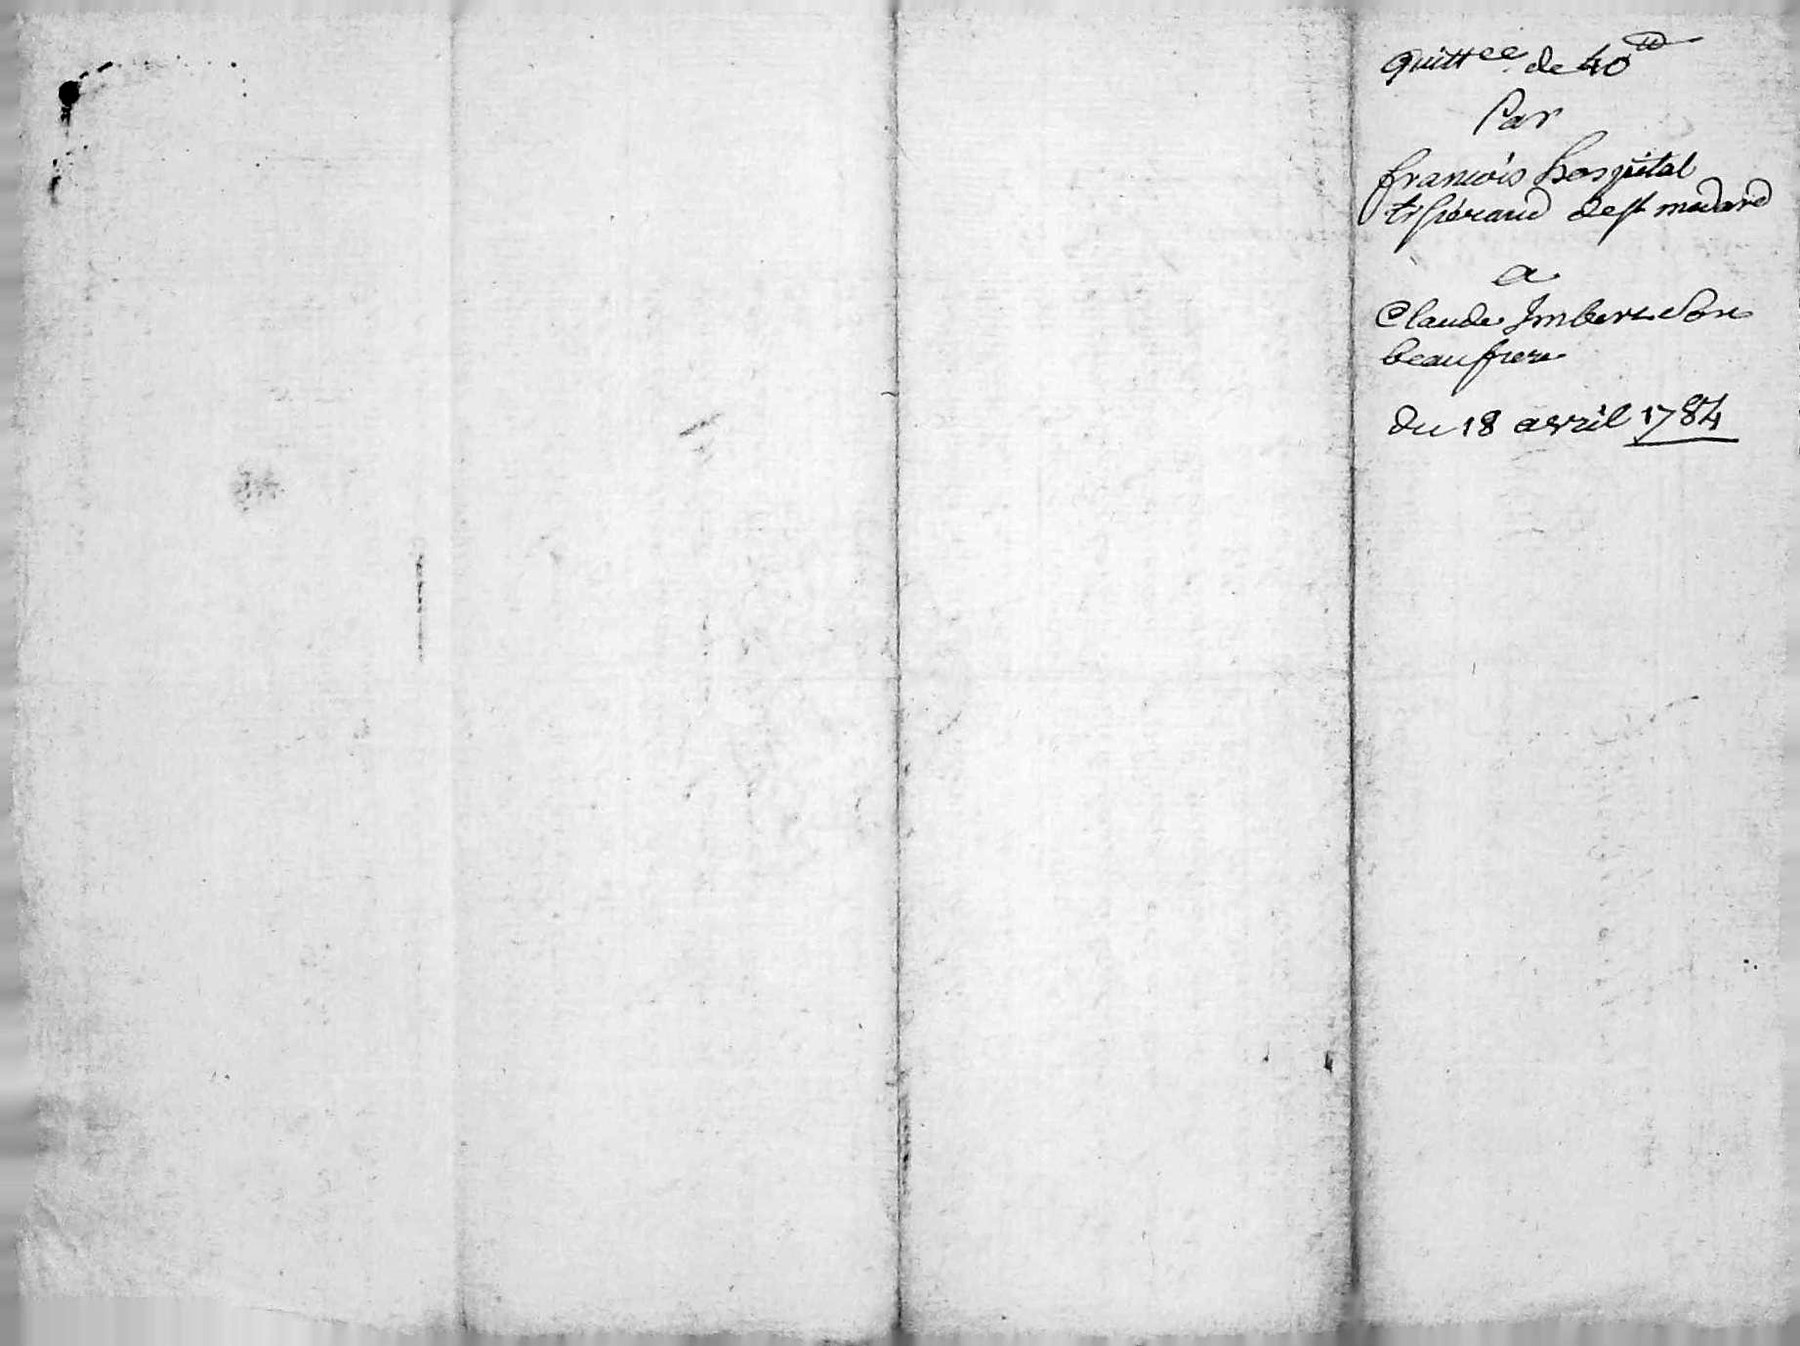 quittce de 40 ₶
Par
francois hospital
tisserand de st medard
a
Claude Imbert Son
beaufrere
du 18 avril 1784